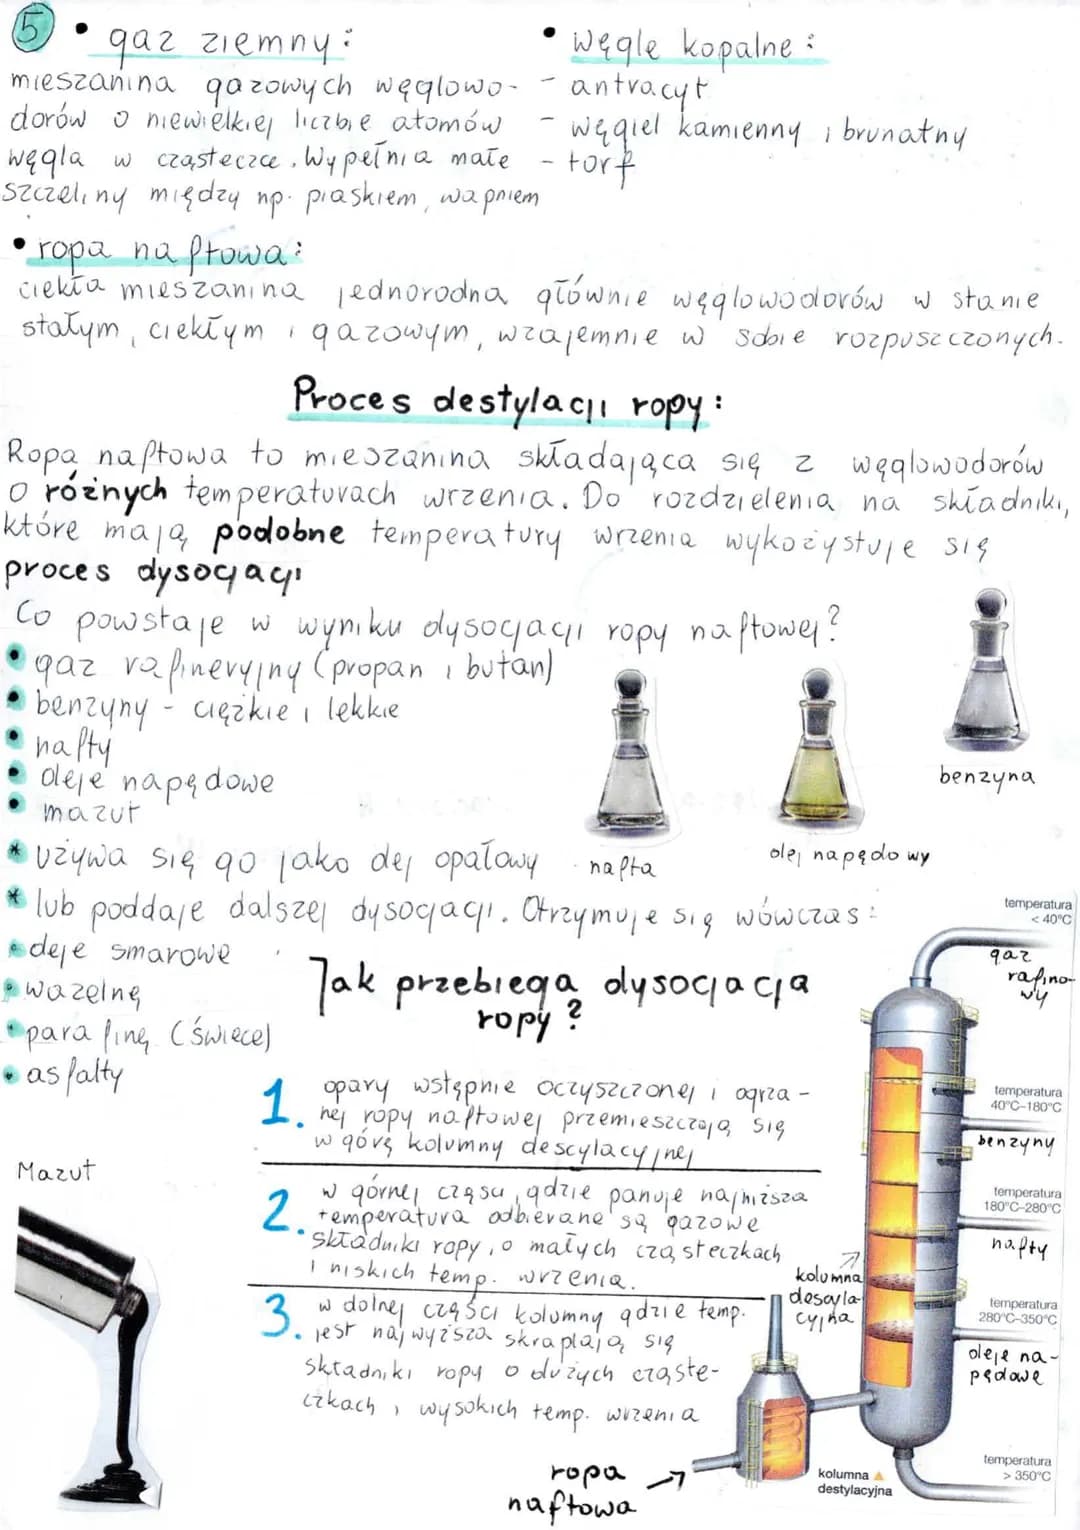 5
• gaz ziemny:
mieszanina gazowych węglowo-
dorów o niewielkiej liczbie atomów
węgla w cząsteczce. Wypełnia małe
szczeliny między np. piaskiem, wapniem
• węgle kopalne:
- antracyt
- węgiel kamienny i brunatny
- torf
• ropa naftowa:
ciekła mieszanina jednorodna głównie węglowodorów w stanie
stałym, ciekłym i gazowym, wzajemnie w sobie rozpuszczonych.
Proces destylacji ropy:
Ropa naftowa to mieszanina składająca się z węglowodorów
o różnych temperaturach wrzenia. Do rozdzielenia na składniki,
które mają podobne temperatury wrzenia wykożystuje się
proces dysocjacji
Co powstaje w wyniku dysocjacji ropy naftowej?
• gaz rafineryjny (propan i butan)
• benzyny - ciężkie i lekkie
• nafty
• oleje napędowe
• mazut
* używa się go jako olej opałowy
* lub poddaje dalszej dysocjacji. Otrzymuje się wówczas:
• oleje smarowe
• wazelnę
• parafinę (świece)
• asfalty
nafta
olej napędowy
benzyna
Jak przebiega dysocjacja
ropy?
1. opary wstępnie oczyszczonej i ogrza-
nej ropy naftowej przemieszczają się
w górę kolumny descylacyjnej
2. w górnej częsci, gdzie panuje najniższa
temperatura odbierane są gazowe
składniki ropy, o małych cząsteczkach
i niskich temp. wrzenia.
3. w dolnej części kolumny gdzie temp.
jest najwyższa skraplają się
składniki ropy o dużych cząste-
czkach i wysokich temp. wrzenia
Mazut
temperatura
< 40°C
gaz
rafino-
wy
temperatura
40°C-180°C
benzyny
temperatura
180°C-280°C
nafty
temperatura
280°C-350°C
oleje na-
pędowe
temperatura
> 350°C
kolumna
descyla-
cyjna
kolumna
destylacyjna
ropa
naftowa